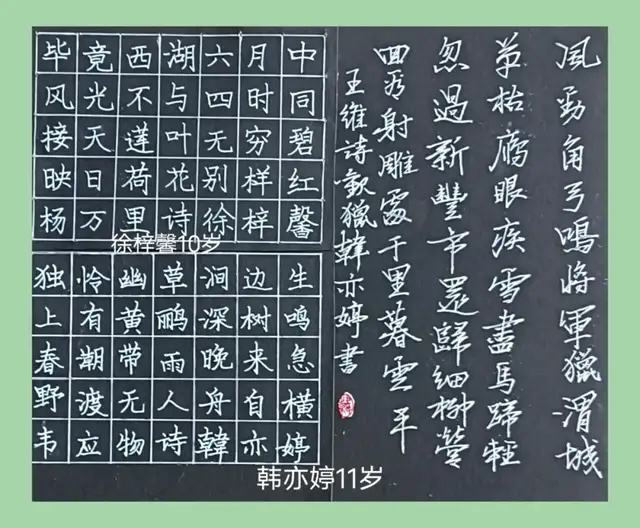 毕竟西湖六月中
风光不与四时同
接天莲叶无穷碧
映日荷花别样红
杨万里诗徐梓馨
徐梓馨10岁
独怜幽草涧边生
上有黄鹂深树鸣
春潮带雨晚来急
野渡无人舟自横
韦应物诗韓亦婷
韩亦婷11岁
風勁角弓鳴將軍獵渭城
草枯鷹眼疾雪盡馬蹄輕
忽過新豐市還歸細柳營
回看射雕處千里暮雲平
王維詩觀獵韓亦婷書